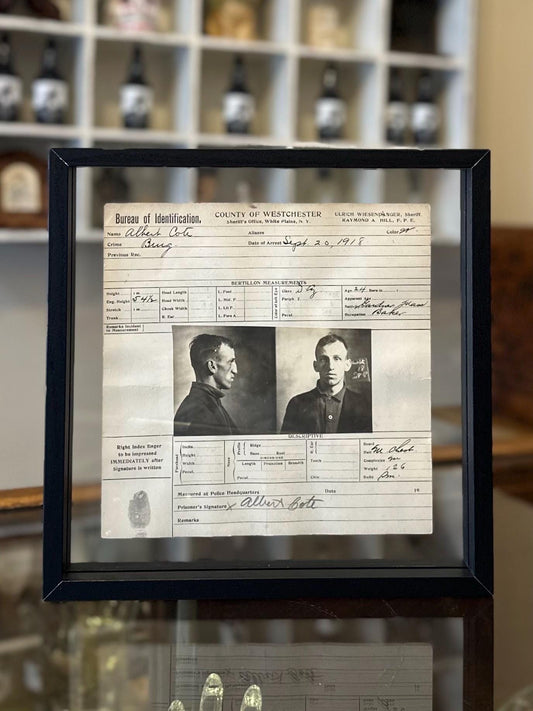 Bureau of Identification.
COUNTY OF WESTCHESTER
Sheriff's Office, White Plains, N. Y.
ULRICH WIESENDANGER, Sheriff.
RAYMOND A HILL, F. P. E.
Name Albert Cote Aliases Color W
Crime Burg. Date of Arrest Sept. 20, 1918
Previous Rec.
BERTILLON MEASUREMENTS
Height 1 m Head Length L. Foot Circle Age 24 Born in
Eng. Height 5 4½ Head Width L. Mid. F. Periph Z Apparent Age
Stretch 1 m Cheek Width L. Lit F. Nativity
Trunk R. Ear L. Fore A. Pecul. Occupation Baker
Remarks Incident
to Measurement
DESCRIPTIVE
Right Index finger
to be impressed
IMMEDIATELY after
Signature is written
Inclin. Ridge Beard
Height Base Root Hair M Chest
Width DIMENSIONS Teeth Complexion M
Pecul. Length Projection Breadth Weight 126
Pecul. Chin Build
Measured at Police Headquarters Date 19
Prisoner's Signature x Albert Cote
Remarks